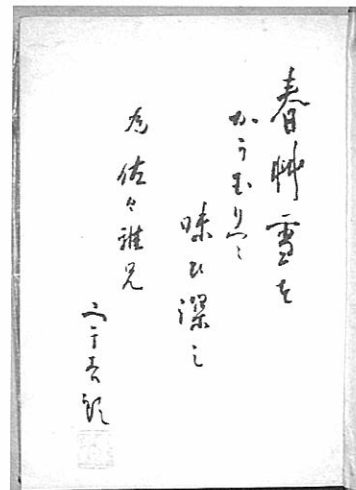 春艸雪を
かうむりて
味ひ深し
為佐々雅兄